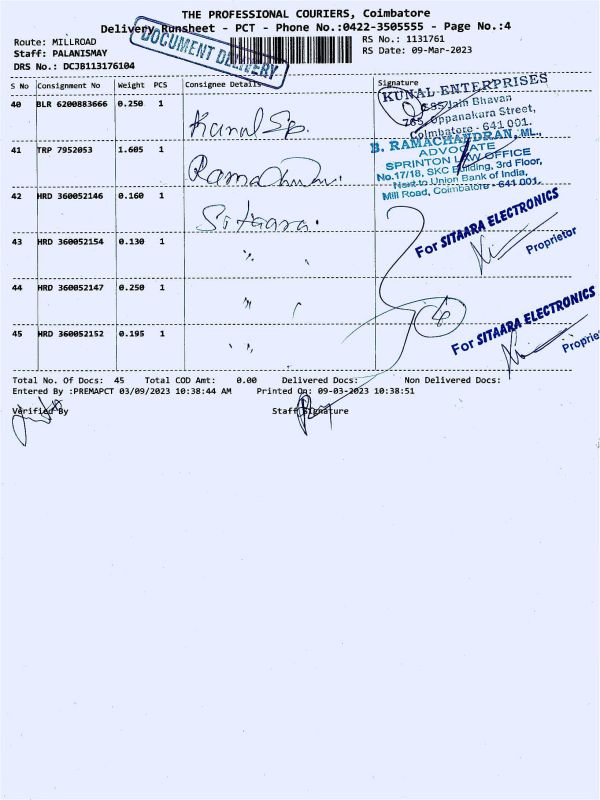 THE PROFESSIONAL COURIERS, Coimbatore
Delivery Runsheet - PCT - Phone No.:0422-3505555 - Page No.:4
Route: MILLROAD
RS No.: 1131761
Staff: PALANISMAY
RS Date: 09-Mar-2023
DRS No.: DCJB113176104
DOCUMENT DELIVERY
S No Consignment No Weight PCS Consignee Details Signature
40 BLR 6200883666 0.250 1
KUNAL ENTERPRISES
Jain Bhavan
Oppanakara Street,
Coimbatore - 641 001.
41 TRP 7952053 1.605 1
B. RAMACHANDRAN, ML.,
ADVOCATE
SPRINTON LAW OFFICE
No.17/18, SKC Building, 3rd Floor,
Next to Union Bank of India,
Mill Road, Coimbatore - 641 001.
42 HRD 360052146 0.160 1 Sitaara.
For SITAARA ELECTRONICS
Proprietor
43 HRD 360052154 0.130 1 "
44 HRD 360052147 0.250 1 "
4
45 HRD 360052152 0.195 1 "
For SITAARA ELECTRONICS
Proprie
Total No. Of Docs: 45 Total COD Amt: 0.00 Delivered Docs: Non Delivered Docs:
Entered By :PREMAPCT 03/09/2023 10:38:44 AM Printed On: 09-03-2023 10:38:51
Verified By Staff Signature